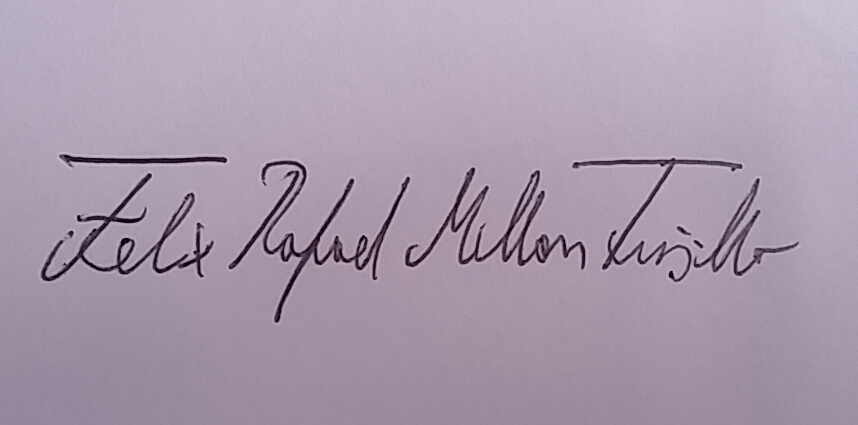 Felix Rafael Millan Trujillo